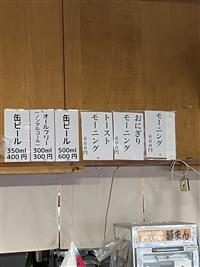 缶ビール
350ml
400円
オールフリー
(ノンアルコール)
300ml
300円
缶ビール
500ml
600円
トースト
モーニング
600円
おにぎり
モーニング
600円
モーニング
豚まん